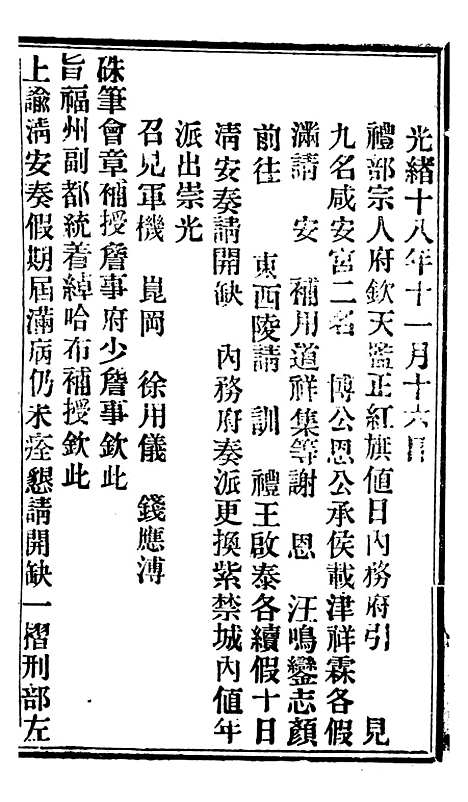 光緒十八年十一月十六日
禮部宗人府欽天監正紅旗値日內務府引 見
九名咸安宮二名 博公恩公承侯載津祥霖各假
滿請 安 補用道祥集等謝 恩 汪鳴鑾志顏
前往 東西陵請 訓 禮王啟泰各續假十日
淸安奏請開缺 內務府奏派更換紫禁城內値年
派出崇光
召見軍機 崑岡 徐用儀 錢應溥
硃筆會章補授詹事府少詹事欽此
旨福州副都統着綽哈布補授欽此
上諭淸安奏假期屆滿病仍未痊懇請開缺一摺刑部左